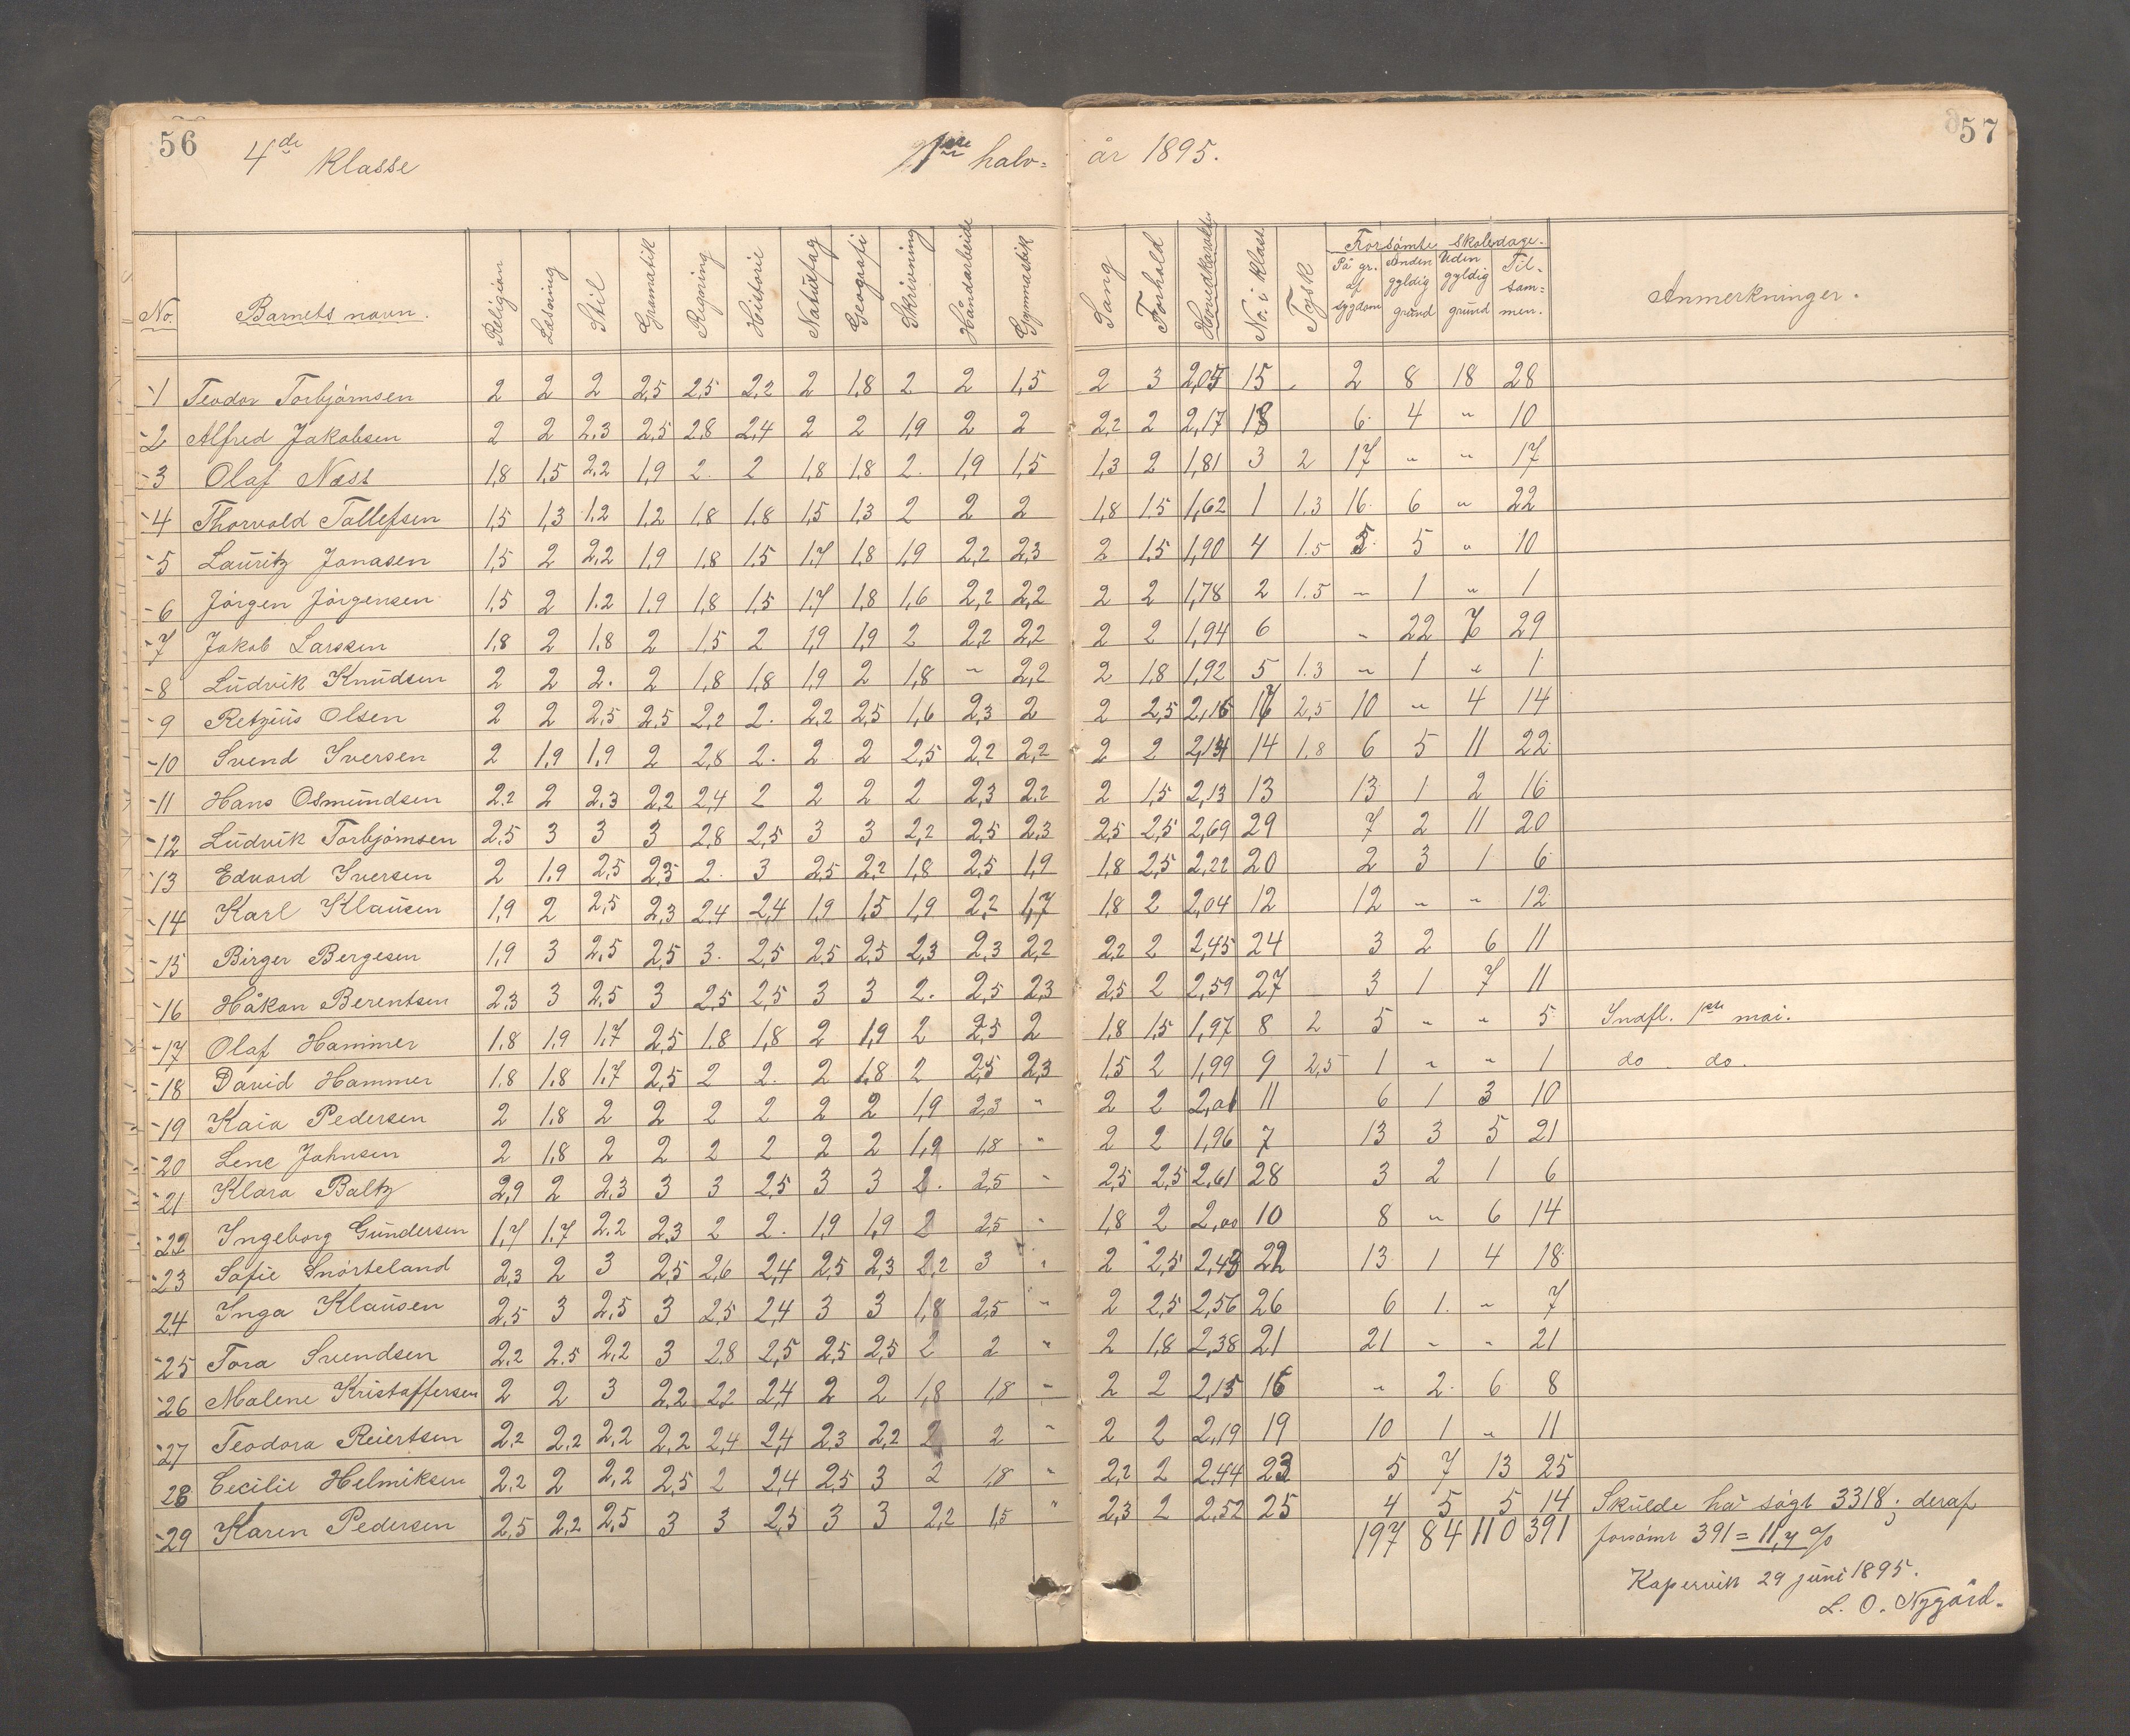 56
57
4de Klasse
1ste halv=
år 1895.
No.
Barnets navn.
Religion
Læsning
Stil
Gramatik
Regning
Historie
Naturfag
Geografi
Skrivning
Håndarbeide
Gymnastik
Sang
Forhold
Hovedkarakter
No. i klass.
Tysk
Forsömte skoledage.
På gr. af sygdom
Anden gyldig grund
Uden gyldig grund
Til=sam=men.
Anmerkninger.
1 Teodor Torbjörnsen 2 2 2 2,5 2,5 2,2 2 1,8 2 2 1,5 2 3 2,05 15 2 8 18 28
2 Alfred Jakobsen 2 2 2,3 2,5 2,8 2,4 2 2 1,9 2 2 2,2 2 2,17 18 6 4 " 10
3 Olaf Næss 1,8 1,5 2,2 1,9 2 2 1,8 1,8 2 1,9 1,5 1,3 2 1,81 3 2 17 " " 17
4 Thorvald Tollefsen 1,5 1,3 1,2 1,2 1,8 1,8 1,5 1,3 2 2 2 1,8 1,5 1,62 1 1.3 16 6 " 22
5 Lauritz Jonasen 1,5 2 2,2 1,9 1,8 1,5 1,7 1,8 1,9 2,2 2,3 2 1,5 1,90 4 1.5 5 5 " 10
6 Jörgen Jörgensen 1,5 2 1.2 1.9 1,8 1,5 1,7 1,8 1,6 2,2 2,2 2 2 1,78 2 1.5 " 1 " 1
7 Jakob Larssen 1,8 2 1,8 2 1,5 2 1,9 1,9 2 2,2 2,2 2 2 1,94 6 " 22 7 29
8 Ludvik Knudsen 2 2 2. 2 1,8 1,8 1,9 2 1,8 " 2,2 2 1,8 1,92 5 1.3 " 1 " 1
9 Retzius Olsen 2 2 2,5 2,5 2,2 2. 2,2 2,5 1,6 2,3 2 2 2,5 2,16 17 2,5 10 " 4 14
10 Svend Iversen 2 1,9 1,9 2 2,8 2. 2 2 2,5 2,2 2,2 2 2 2,14 14 1.8 6 5 11 22
11 Hans Osmundsen 2,2 2 2.3 2,2 2,4 2 2 2 2 2,3 2,2 2 1,5 2,13 13 13 1 2 16
12 Ludvik Torbjörnsen 2,5 3 3 3 2,8 2,5 3 3 2,2 2,5 2,3 2,5 2,5 2,69 29 7 2 11 20
13 Edvard Iversen 2 1.9 2,5 2,5 2. 3 2,5 2,2 1,8 2,5 1,9 1,8 2,5 2,22 20 2 3 1 6
14 Karl Klausen 1,9 2 2,5 2,3 2,4 2,4 1,9 1,5 1,9 2,2 1,7 1,8 2 2,04 12 12 " " 12
15 Birger Bergesen 1,9 3 2,5 2,5 3. 2,5 2,5 2,5 2,3 2,3 2,2 2,2 2 2,45 24 3 2 6 11
16 Håkon Berentsen 2,3 3 2,5 3 2,5 2,5 3 3 2. 2,5 2,3 2,5 2 2,59 27 3 1 7 11
17 Olaf Hammer 1.8 1,9 1.7 2,5 1.8 1,8 2 1,9 2 2,5 2 1,8 1,5 1,97 8 2 5 " " 5 Indfl. 1ste mai.
18 David Hammer 1.8 1.8 1.7 2,5 2 2. 2 1,8 2 2,5 2,3 1,5 2 1,99 9 2,5 1 " " 1 do. do.
19 Kaia Pedersen 2 1.8 2 2 2 2 2 2 1,9 2,3 " 2 2 2,01 11 6 1 3 10
20 Lene Johnsen 2 1,8 2 2 2 2 2 2 1,9 1,8 " 2 2 1,96 7 13 3 5 21
21 Klara Baltz 2,9 2 2,3 3 3 2,5 3 3 2. 2,5 " 2,5 2,5 2,61 28 3 2 1 6
22 Ingeborg Gundersen 1,7 1.7 2.2 2,3 2 2. 1,9 1,9 2 2,5 " 1,8 2 2,00 10 8 " 6 14
23 Sofie Snörteland 2,3 2 3 2,5 2,6 2,4 2,5 2,3 2,2 3 " 2 2,5 2,43 22 13 1 4 18
24 Inga Klausen 2,5 3 2,5 3 2,5 2,4 3 3 1,8 2,5 " 2 2,5 2,56 26 6 1. " 7
25 Tora Svendsen 2,2 2.5 2,2 3 2,8 2,5 2,5 2,5 2 2 " 2 1,8 2,38 21 21 " " 21
26 Malene Kristoffersen 2 2 3 2,2 2,2 2,4 2 2 1,8 1,8 " 2 2 2,15 16 " 2. 6 8
27 Teodora Reiertsen 2,2 2,2 2,2 2,2 2,4 2,4 2,3 2,2 2 2 " 2 2 2,19 19 10 1 " 11
28 Cecilie Helmiksen 2,2 2 2,2 2,5 2 2,4 2,5 3 2 1,8 " 2,2 2 2,44 23 5 7 13 25
29 Karen Pedersen 2,5 2,2 2,5 3 3 2,5 3 3 2,2 1,5 " 2,3 2 2,52 25 4 5 5 14 Skulde ha sögt 3318; deraf
197 84 110 391 forsömt 391 = 11,7 %
Kopervik 29 juni 1895.
L. O. Nygård.